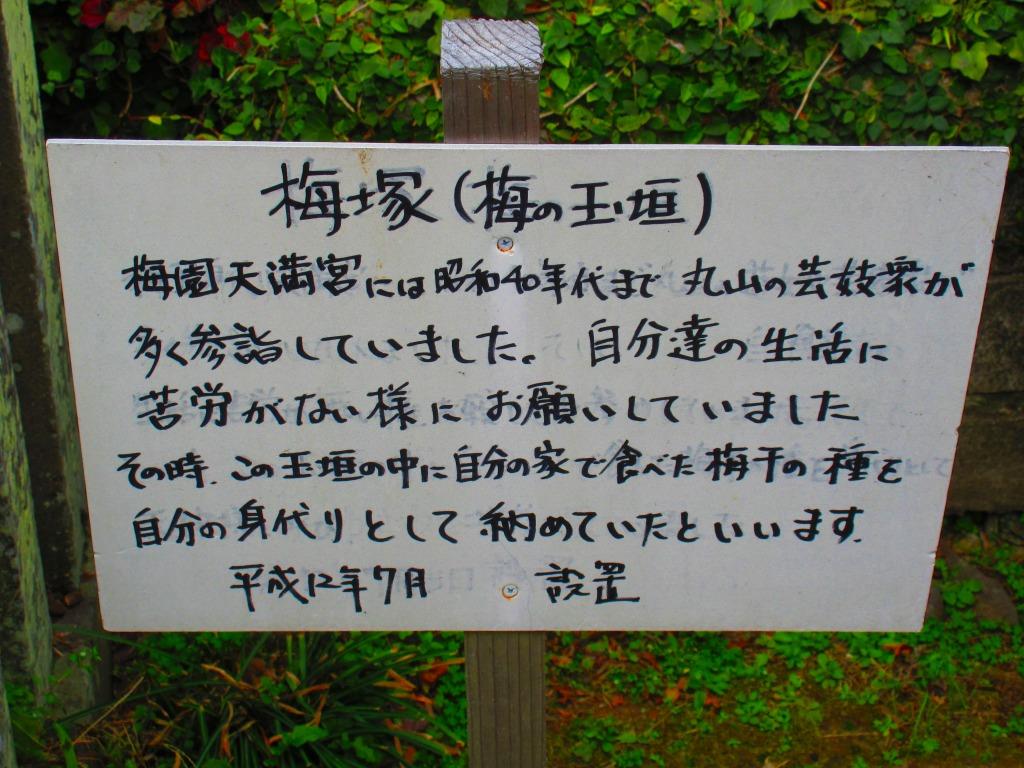 梅塚(梅の玉垣)
梅園天満宮には昭和40年代まで丸山の芸妓衆が
多く参詣していました。自分達の生活に
苦労がない様にお願いしていました
その時、この玉垣の中に自分の家で食べた梅干の種を
自分の身代りとして納めていたといいます.
平成12年7月 設置